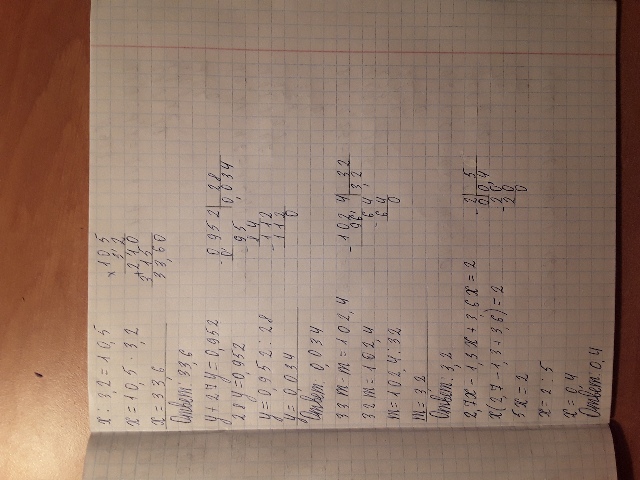 x : 3,2 = 10,5
x = 10,5 · 3,2
x = 33,6
×10,5
3,2
+210
315
33,60
Ответ: 33,6
y + 27y = 0,952
28y = 0,952
y = 0,952 : 28
y = 0,034
-0,952 | 28
0 | 0,034
-95
84
-112
112
0
Ответ: 0,034
33m - m = 102,4
32m = 102,4
m = 102,4 : 32
m = 3,2
-102,4 | 32
96 | 3,2
-64
64
0
Ответ: 3,2
2,7x - 1,3x + 3,6x = 2
x(2,7 - 1,3 + 3,6) = 2
5x = 2
x = 2 : 5
x = 0,4
-2 | 5
0 | 0,4
-20
20
0
Ответ: 0,4